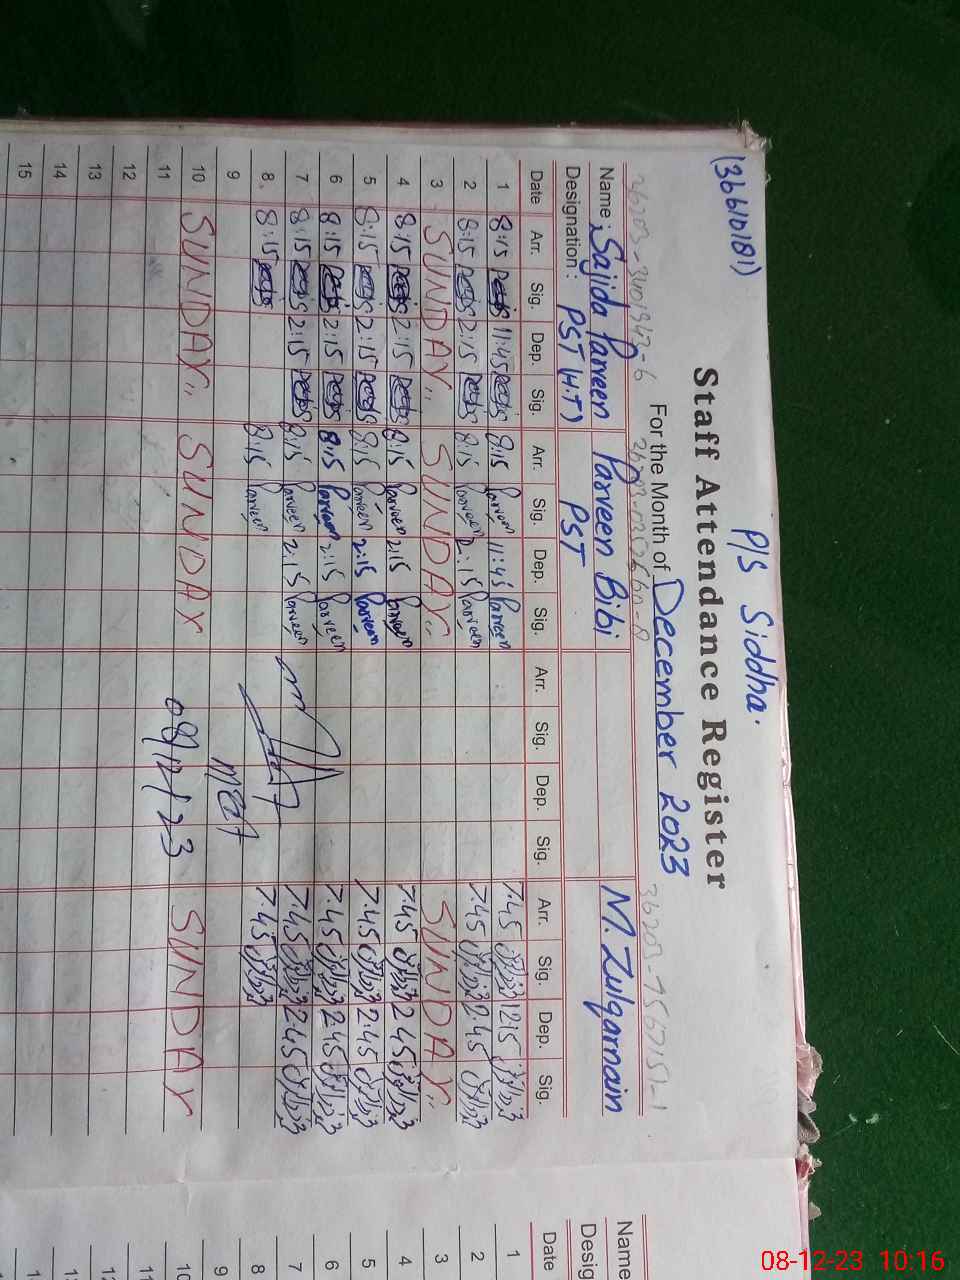 P/S Siddha.
(36610181)
Staff Attendance Register
For the Month of December 2023
Name : Sajida Parveen Parveen Bibi M. Zulqarnain
Designation : PST (H.T) PST
Date Arr. Sig. Dep. Sig. Arr. Sig. Dep. Sig. Arr. Sig. Dep. Sig. Arr. Sig. Dep. Sig.
1 8:15 11:45 8:15 Parveen 11:45 Parveen 7.45 12:15
2 8:15 2:15 8:15 Parveen 2:15 Parveen 7.45 2.45
3 SUNDAY,, SUNDAY,, SUNDAY,,
4 8:15 2:15 8:15 Parveen 2:15 Parveen 7.45 2.45
5 8:15 2:15 8:15 Parveen 2:15 Parveen 7.45 2.45
6 8:15 2:15 8:15 Parveen 2:15 Parveen 7.45 2.45
7 8:15 2:15 8:15 Parveen 2:15 Parveen 7.45 2.45
8 8:15 8:15 Parveen 7.45
9
10 SUNDAY,, SUNDAY SUNDAY
11 08/12/23
12
13
14
15
Name
Desig
Date
1
2
3
4
5
6
7
8
9
10
11
08-12-23 10:16